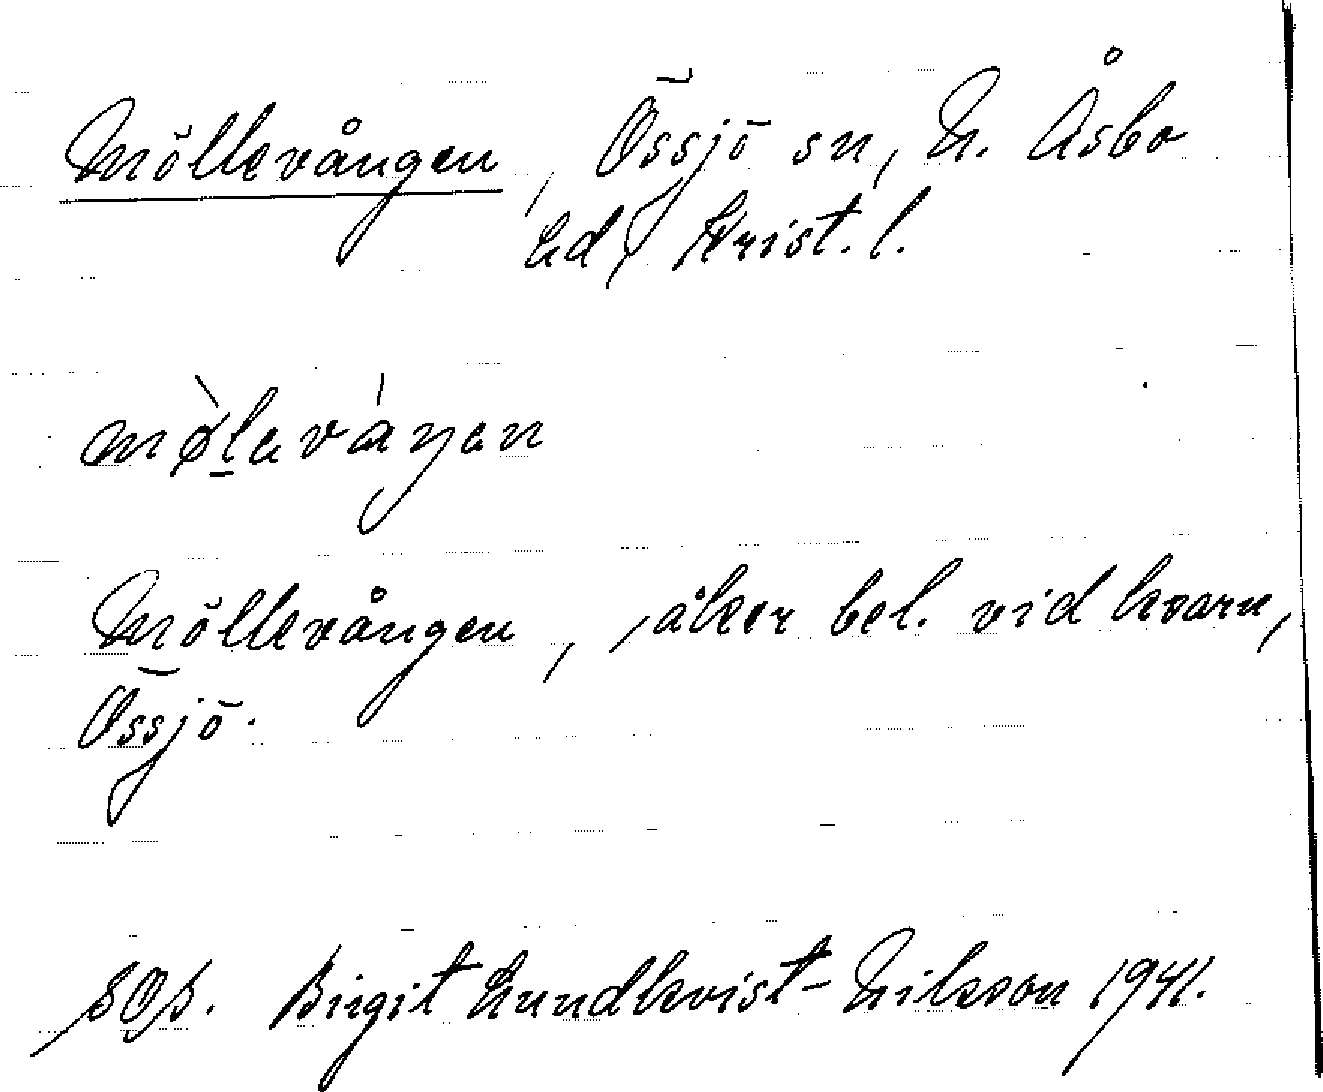 Möllevången, Össjö sn, N. Åsbo
hd, Krist. l.
mø̀laváŋan
Möllevången, åker bel. vid kvarn,
Össjö.
SOS. Birgit Lundkvist-Nilsson 1941.